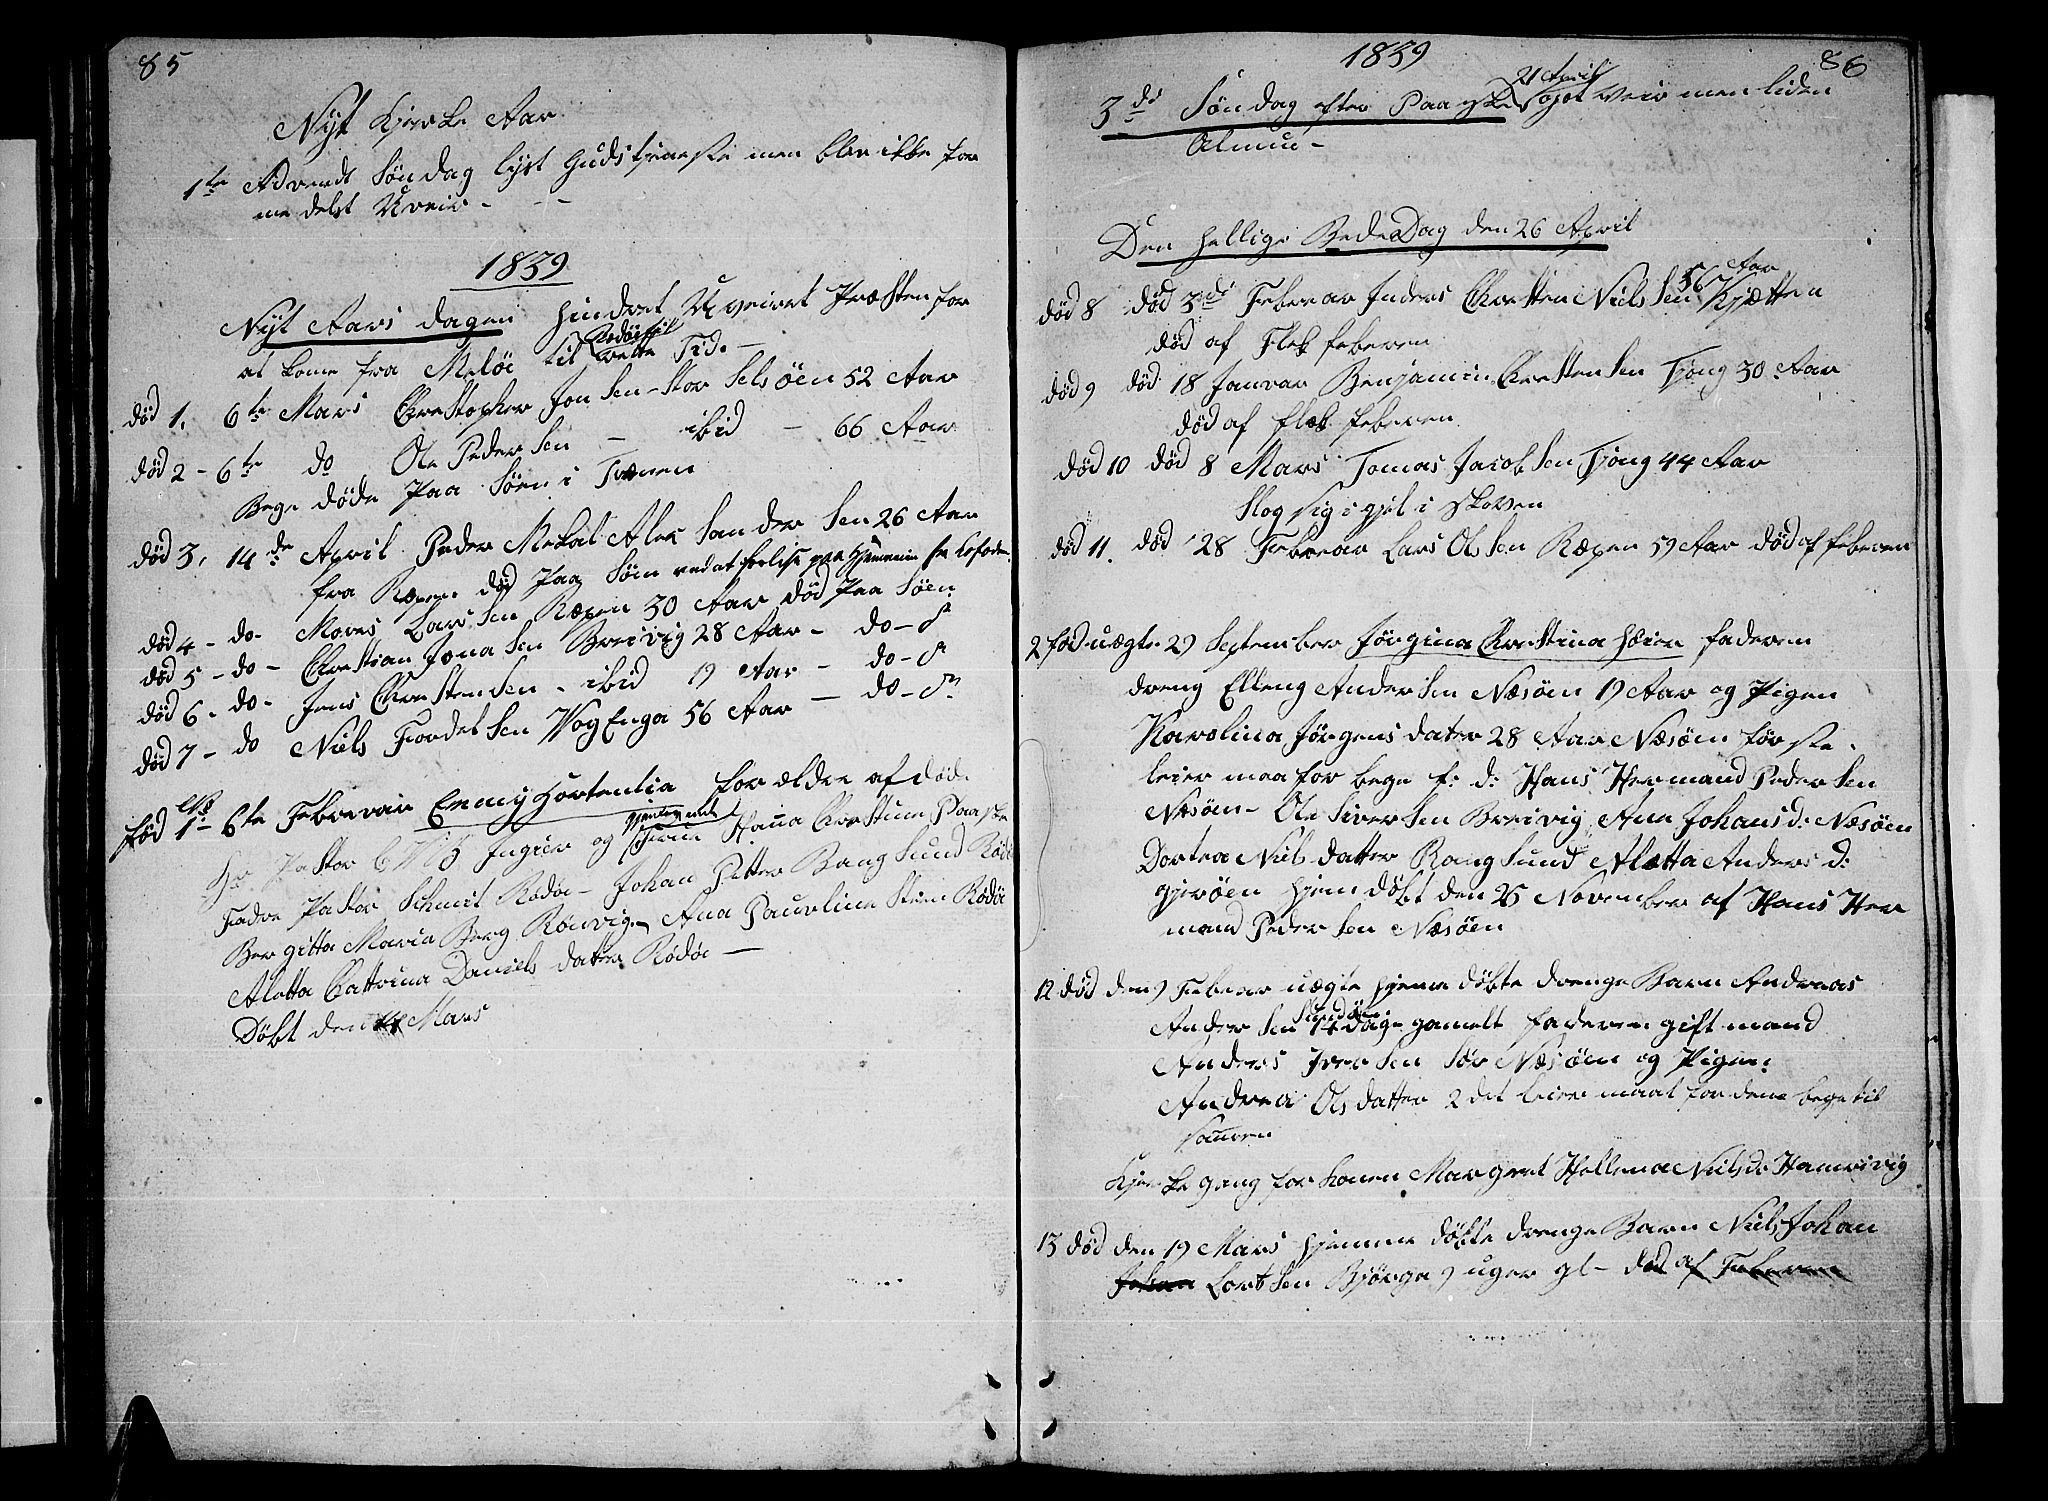 85
Nyt Kjerke Aar
1te Advendt Søndag lyst Gudstjeneste men blev ikke for
medelst Uveir - - -
1839
Nyt Aars dagen hindret Uveiret Præsten for
at kome fra Meløe til Rødøe til rette Tid. -
død 1. 6te Mars Chrestopher Jonsen - Stor Selsöen 52 Aar
død 2 - 6te do Ole Pedersen - ibid - 66 Aar
Bege døde Paa Söen i Trænen
død 3, 14de April Peder Mekal Aleksandersen 26 Aar
fra Ræpen død Paa Söen ved at forlise paa Hjemreise fra Lofoden
død 4 - do - Mores Larssen Ræpen 30 Aar død Paa Söen
død 5 - do - Chrestian Jonasen Breivig 28 Aar - do - S
død 6 - do - Jens Chrestensen - ibid 19 Aar - do - S
død 7 - do Niels Tordetsen Vog Enga 56 Aar - do - S
fød 1 6te Februar Emmy Hortentia forældre af død.
Hr Pastor Ingier og Hana Chrestine Paaske
Fadre Pastor Schmit Rödöe - Johan Petter Bangsund Rödö
Bergitta Maria Berg Rönvig - Ana Paurline Steen Rödöe
Aletta Cattrina Daniels dater Rödöe -
Döbt den Mars
1839
86
3de Søndag efter Paaske 21 April got Veir men liden
Almue -
Den hellige BedeDag den 26 April
død 8 død 3de Februar Inders Chresten Nielsen 56 Aar Kjætten
død af Flek feberen
død 9 død 18 Januar Benjamin Chrestensen Tjong 30 Aar
død af flek feberen
død 10 død 8 Mars Tomas Jacobsen Tjong 44 Aar
Slog sig i hjel i skoven
død 11. død 28 Februar Lars Olsen Ræpen 59 Aar død af feberen
2 fød uægte 29 September Jørgina Chrestina Hæier faderen
dreng Elleng Andersen Næsöen 19 Aar og Pigen
Karolina Jörgensdater 28 Aar Næsöen förste
leiermaa for bege f: d: Hans Hermand Pedersen
Næsöen - Ole Siversen Breivig Ana Johansd: Næsöen
Dortea Nielsdatter Rangsund Alætta Anders d:
gjeröen Hjemdöbt den 25 November af Hans Her
mand Pedersen Næsöen
12 død den 9 Febuar uægte hjeme döbte drenge Barn Andreas
Andersen Sundöen 14 dage gamelt faderen gift mand
Anders Iversen Sör Næsöen og Pigen:
Andrea Olsdatter 2det leiermaal for dem bege til
samen
Kjerkegang for konen Margret Hellena Nielsd: Hamrvig
13 død den 19 Mars hjemme döbte drenge Barn Niels Johan
Johan Loretsen Björga 9 uger gl - død af Feberen